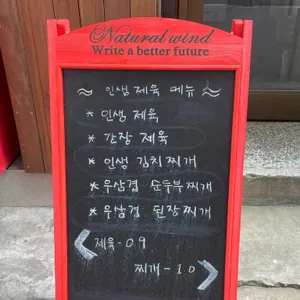 Natural wind
Write a better future
≈ 인생 제육 메뉴 ≈
* 인생 제육
* 간장 제육
* 인생 김치찌개
* 우삼겹 순두부찌개
* 우삼겹 된장찌개
제육 - 0.9
찌개 - 1.0